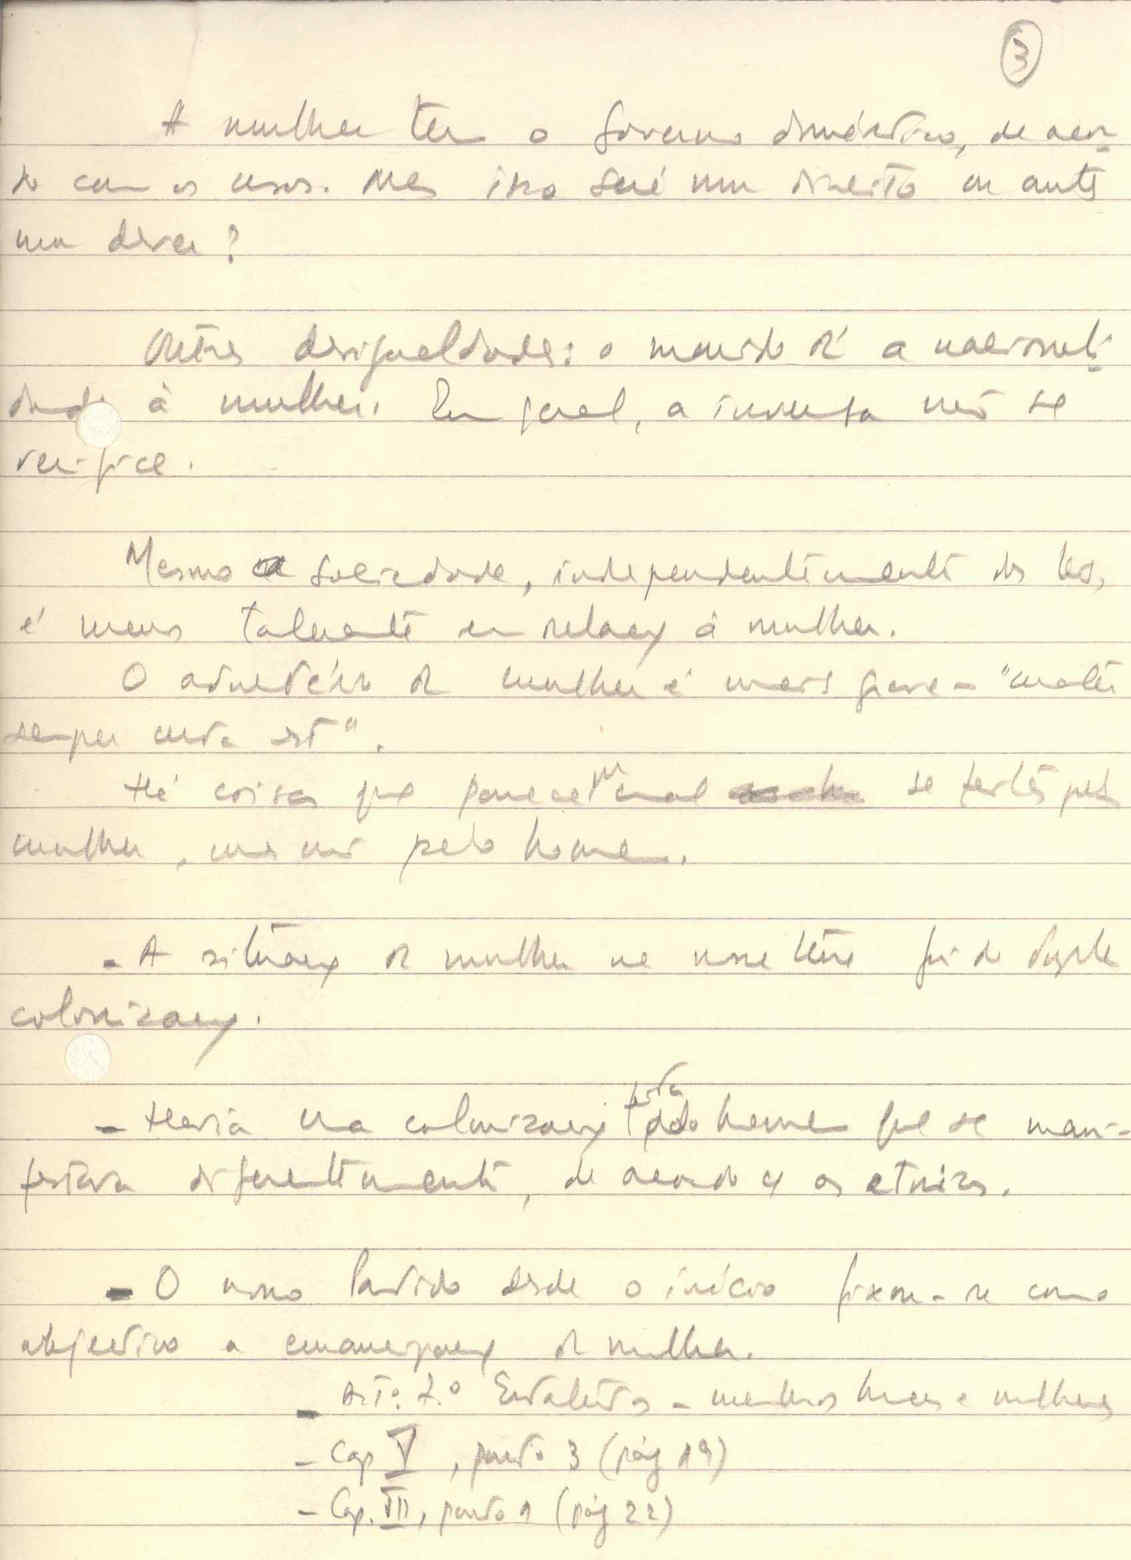 3
A mulher tem o Governo doméstico, de acor-
do com os usos. Mas isso será um direito ou antes
um dever?
Outras desigualdades: o marido dá a nacionali-
dade à mulher. Em geral, a inversa não se
verifica.
Mesmo a sociedade, independentemente das leis,
é menos tolerante em relação à mulher.
O adultério da mulher é mais grave - "mater
semper certa est".
Há coisas que parecem mal se feitas pela
mulher, mas não pelo homem.
- A situação da mulher na nossa terra foi de dupla
colonização.
- Havia uma colonização feita pelo homem que se mani-
festava diferentemente, de acordo c/ as etnias.
- O nosso Partido desde o início fixou-se como
objectivo a emancipação da mulher.
- Artº. 2.º Estatutos - membros homens e mulheres
- Cap V, ponto 3 (pág 19)
- Cap. VII, ponto 1 (pág 22)